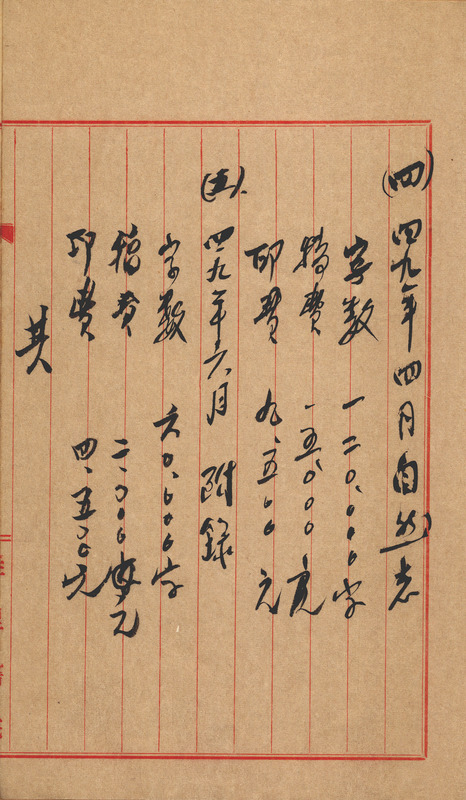 (四)四九年四月自然志
字数 一二〇、〇〇〇字
稿費 一五、〇〇〇元
印費 九、五〇〇元
(五)、四九年六月 附錄
字數 六〇、〇〇〇字
稿費 二、〇〇〇元
印費 四、五〇〇元
其